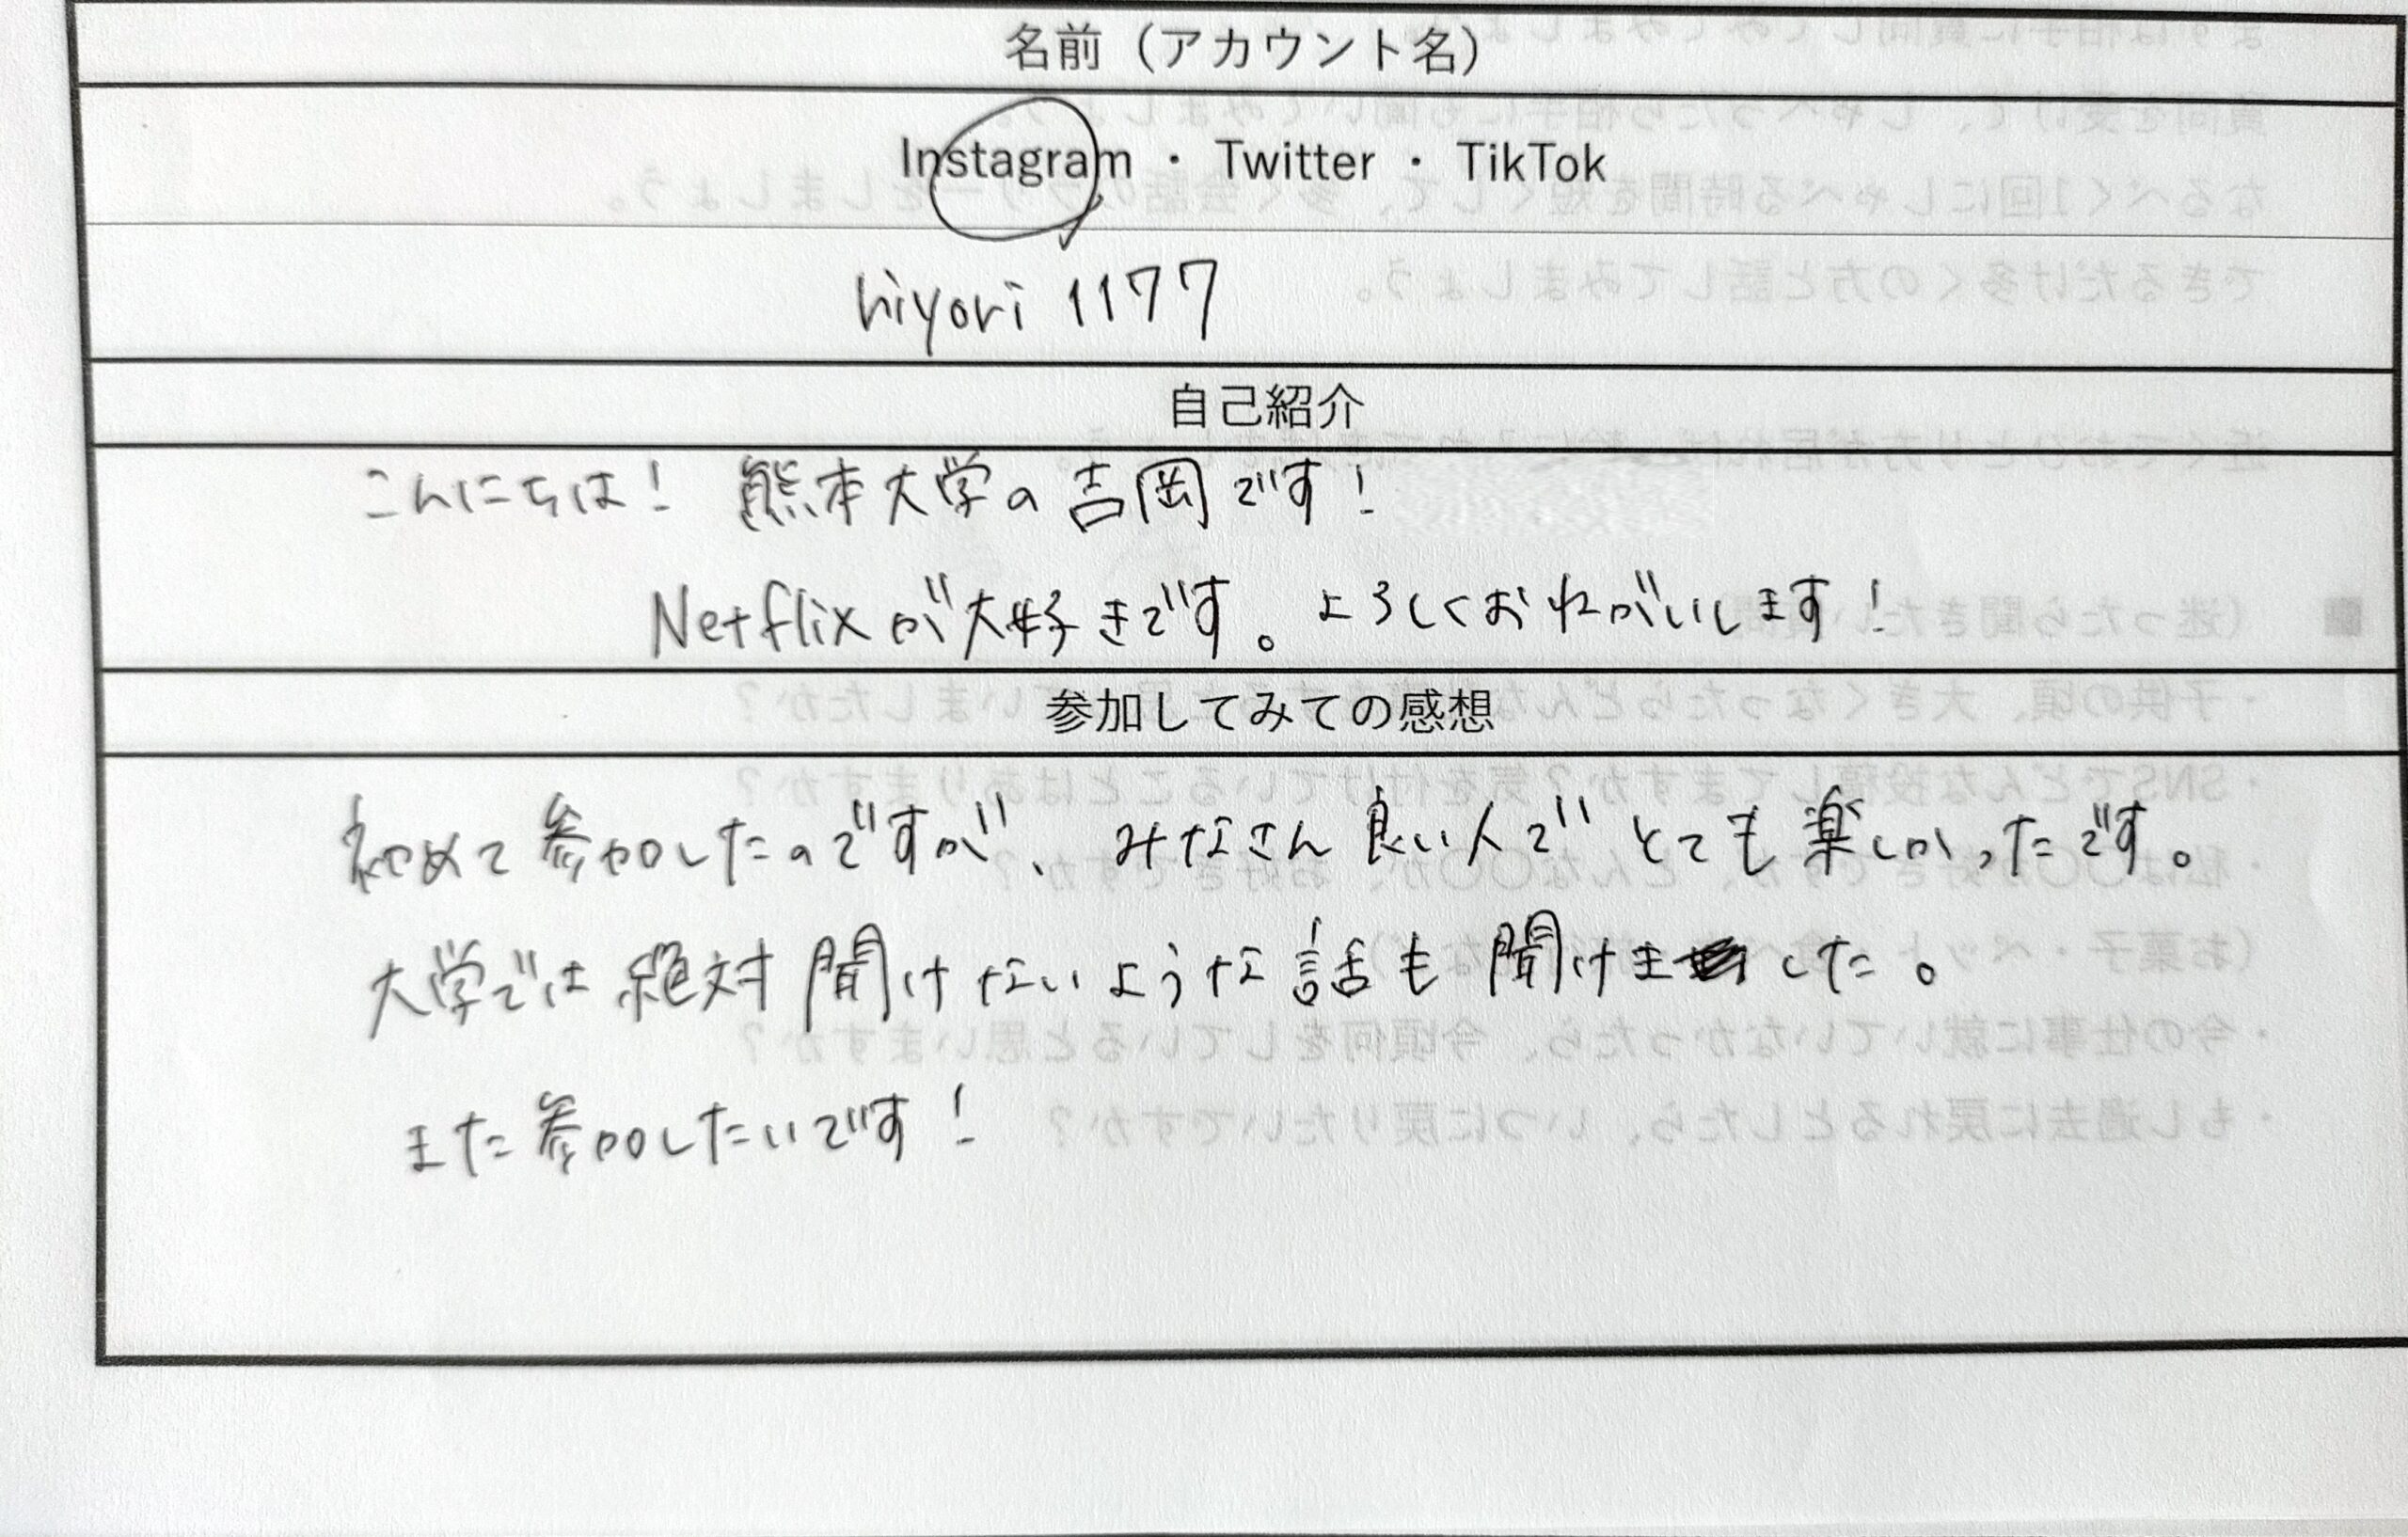 名前（アカウント名）
Instagram ・ Twitter ・ TikTok
hiyori 1177
自己紹介
こんにちは! 熊本大学の吉岡です!
Netflixが大好きです。よろしくおねがいします!
参加してみての感想
初めて参加したのですが、みなさん良い人でとても楽しかったです。
大学では絶対聞けないような話も聞けました。
また参加したいです!